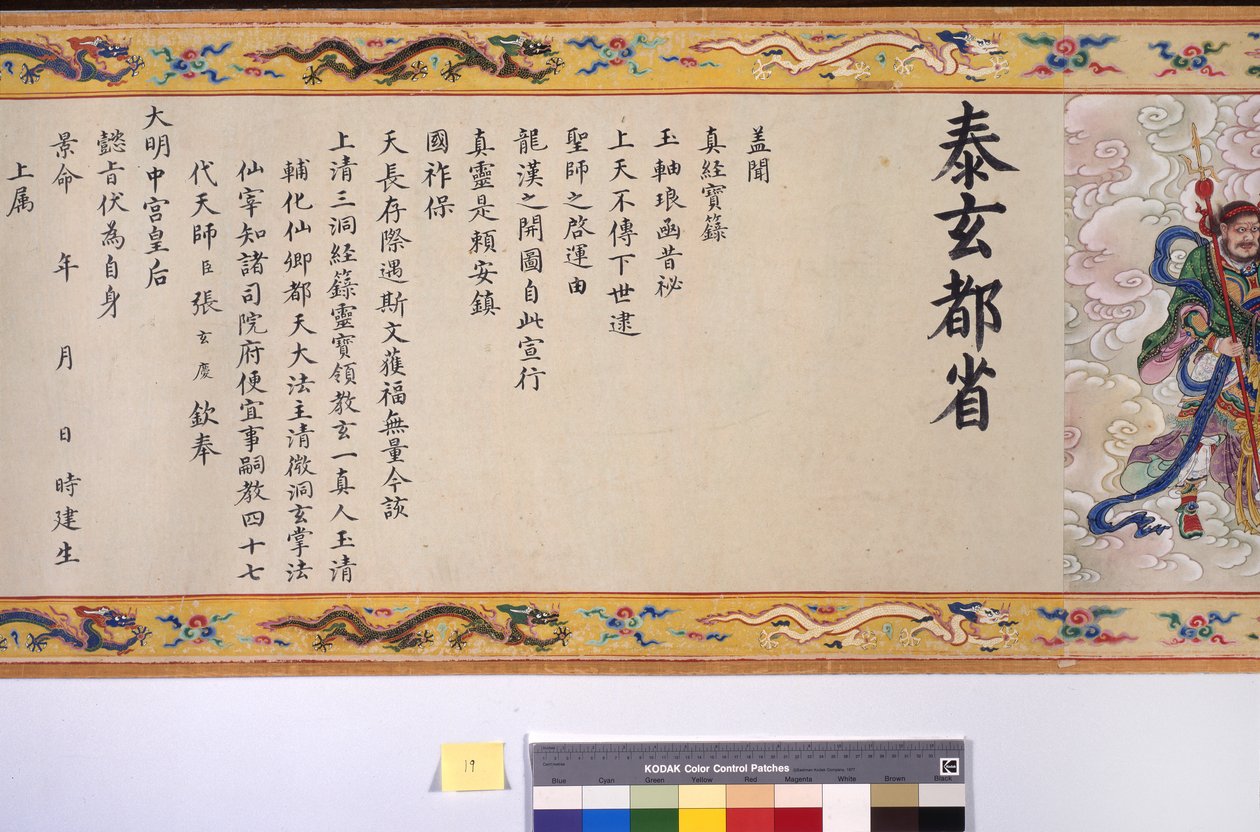 泰玄都省
盖聞
真経寶籙
玉軸琅函昔祕
上天不傳下世逮
聖師之啓運由
龍漢之開圖自此宣行
真靈是頼安鎮
國祚保
天長存際遇斯文獲福無量今該
上清三洞経籙靈寶領教玄一真人玉清
輔化仙卿都天大法主清微洞玄掌法
仙宰知諸司院府便宜事嗣教四十七
代天師臣張玄慶欽奉
大明中宮皇后
懿旨伏為自身
景命 年 月 日 時建生
上属
19
KODAK Color Control Patches
Blue Cyan Green Yellow Red Magenta White Brown Black